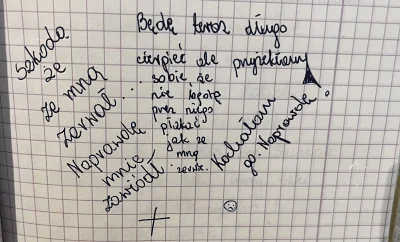 Szkoda
że
ze mną
zerwał...
Naprawdę
mnie
zawiódł.
Będę teraz długo
cierpieć ale
sobie że
nie
przez niego
płakać
jak ze
mną
zerwie.
Kochałam
go. Naprawdę.